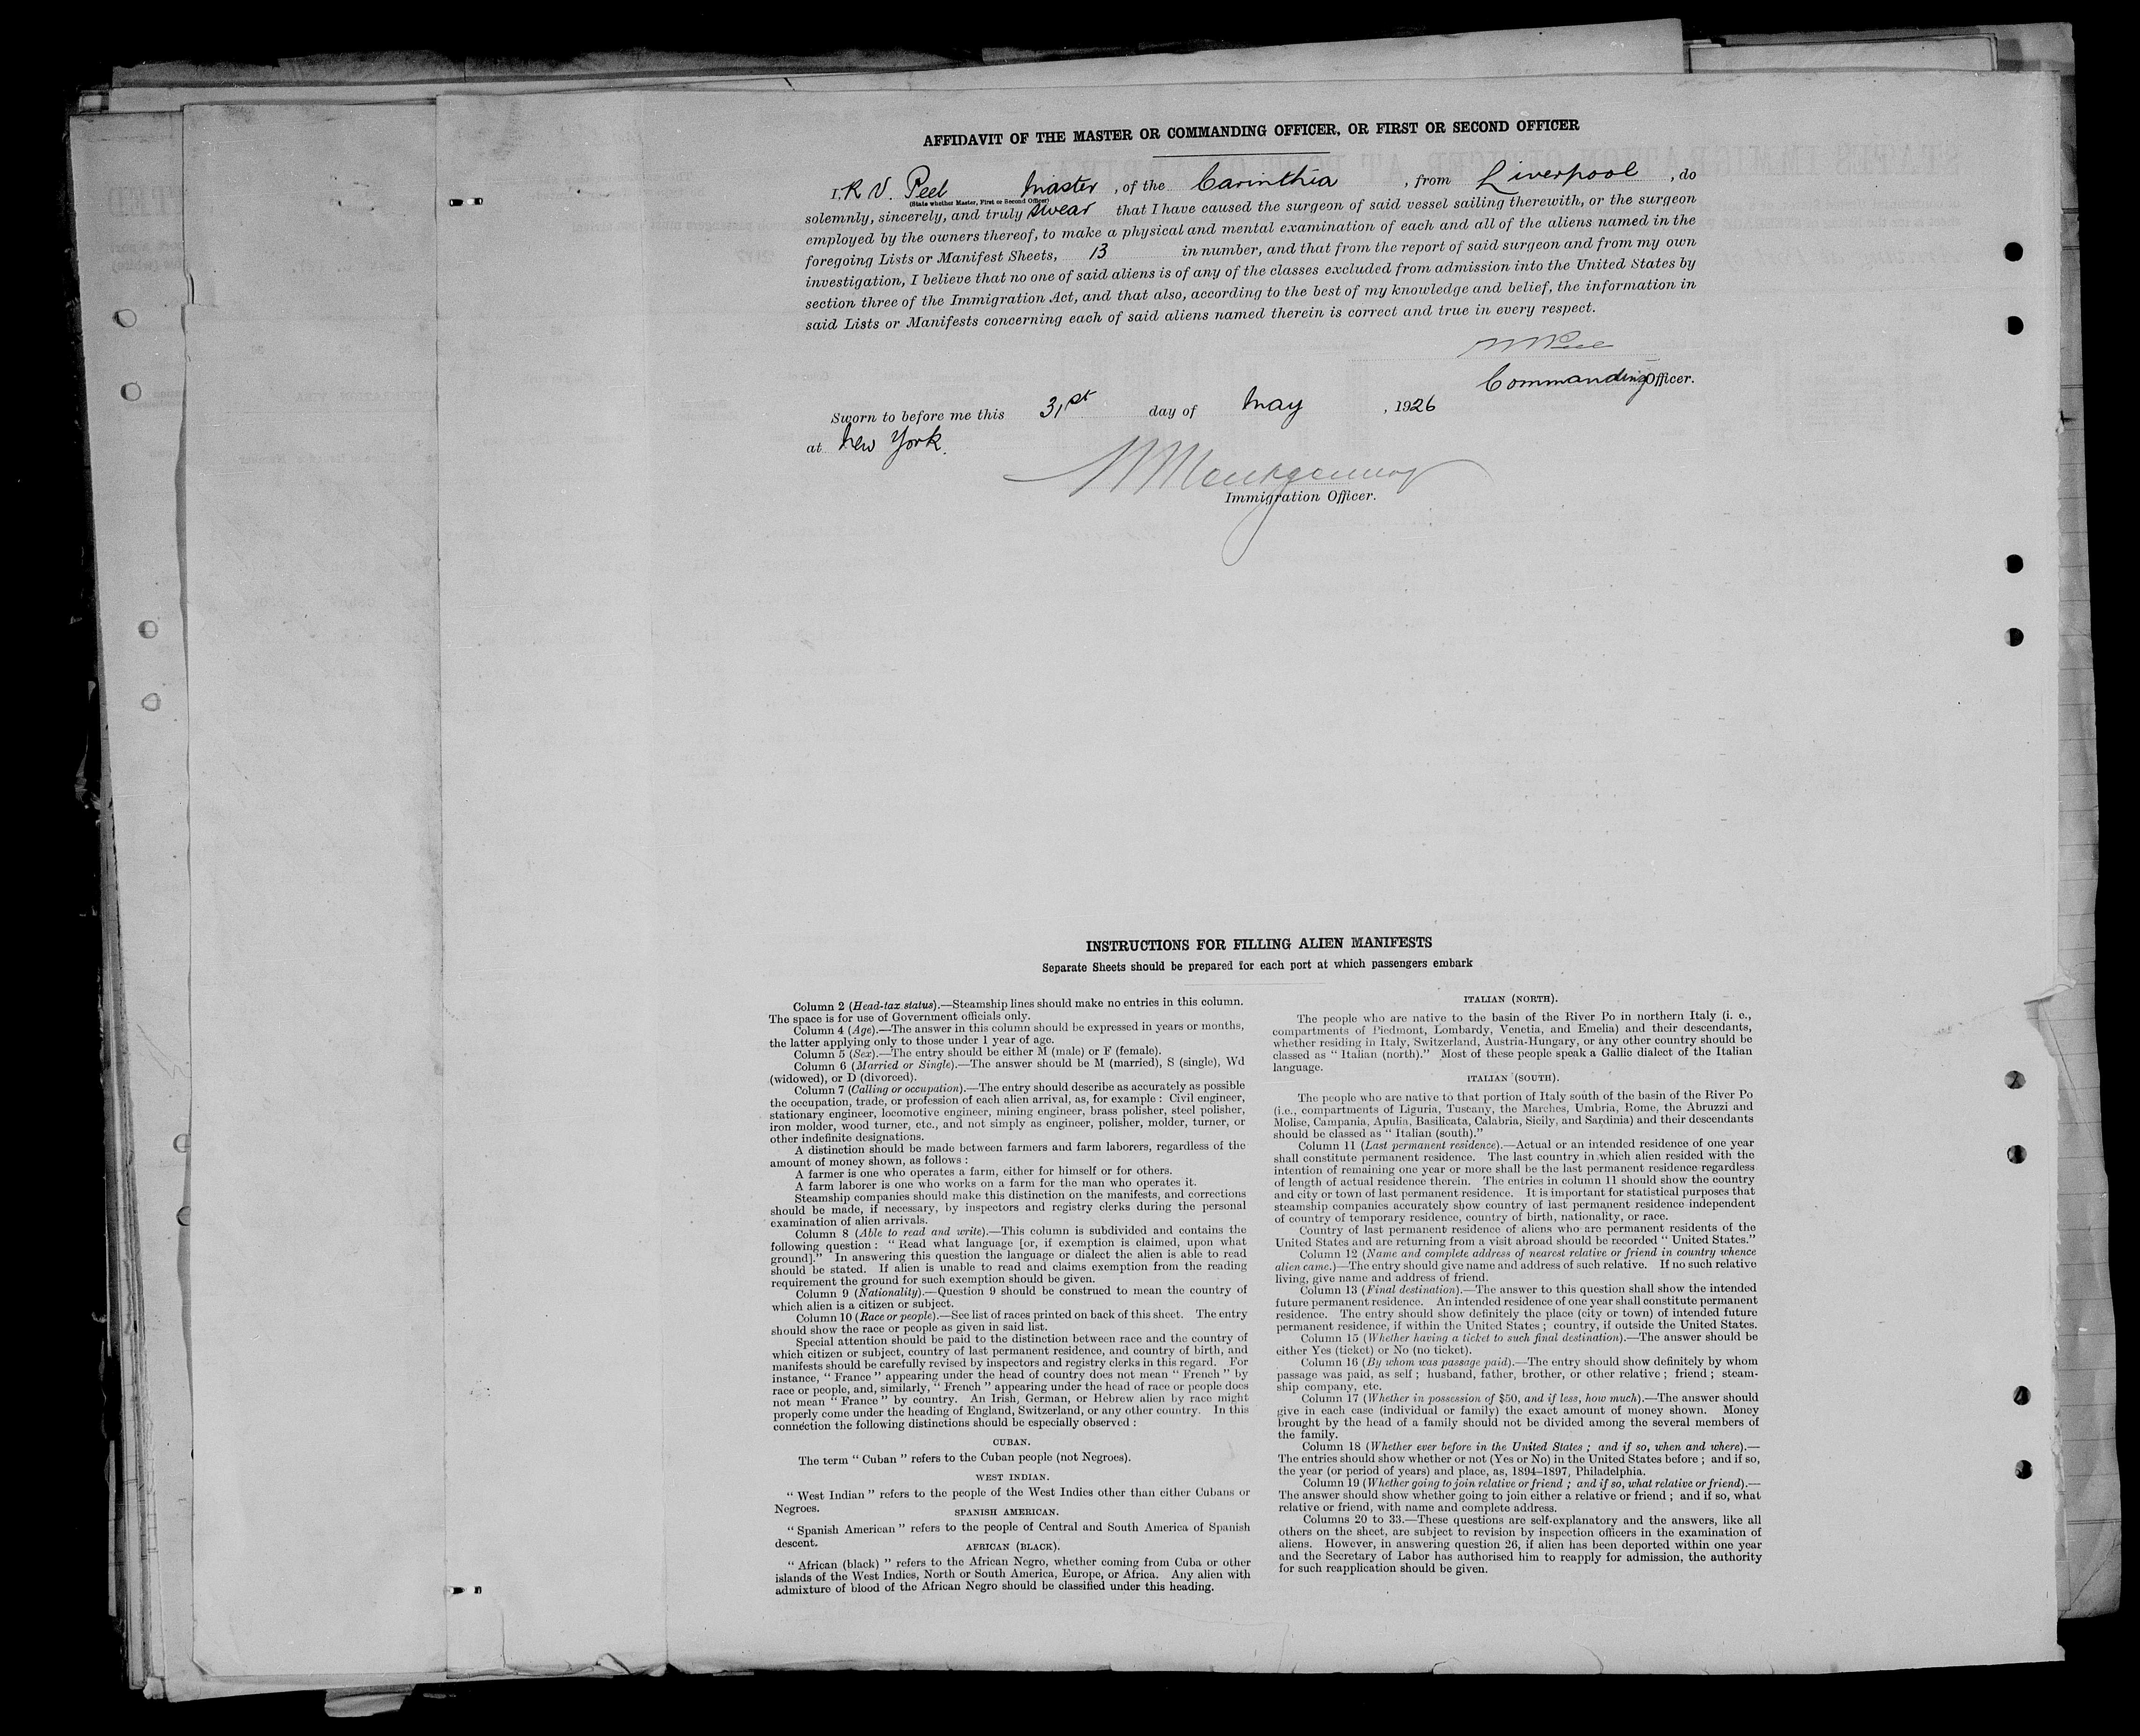 AFFIDAVIT OF THE MASTER OR COMMANDING OFFICER, OR FIRST OR SECOND OFFICER
I, R V. Peel Master, of the Carinthia, from Liverpool, do
(State whether Master, First or Second Officer)
solemnly, sincerely, and truly swear that I have caused the surgeon of said vessel sailing therewith, or the surgeon
employed by the owners thereof, to make a physical and mental examination of each and all of the aliens named in the
foregoing Lists or Manifest Sheets, 13 in number, and that from the report of said surgeon and from my own
investigation, I believe that no one of said aliens is of any of the classes excluded from admission into the United States by
section three of the Immigration Act, and that also, according to the best of my knowledge and belief, the information in
said Lists or Manifests concerning each of said aliens named therein is correct and true in every respect.
Commanding Officer.
Sworn to before me this 31st day of May, 1926
at New York.
Immigration Officer.
INSTRUCTIONS FOR FILLING ALIEN MANIFESTS
Separate Sheets should be prepared for each port at which passengers embark
Column 2 (Head-tax status).—Steamship lines should make no entries in this column.
The space is for use of Government officials only.
Column 4 (Age).—The answer in this column should be expressed in years or months,
the latter applying only to those under 1 year of age.
Column 5 (Sex).—The entry should be either M (male) or F (female).
Column 6 (Married or Single).—The answer should be M (married), S (single), Wd
(widowed), or D (divorced).
Column 7 (Calling or occupation).—The entry should describe as accurately as possible
the occupation, trade, or profession of each alien arrival, as, for example : Civil engineer,
stationary engineer, locomotive engineer, mining engineer, brass polisher, steel polisher,
iron molder, wood turner, etc., and not simply as engineer, polisher, molder, turner, or
other indefinite designations.
A distinction should be made between farmers and farm laborers, regardless of the
amount of money shown, as follows :
A farmer is one who operates a farm, either for himself or for others.
A farm laborer is one who works on a farm for the man who operates it.
Steamship companies should make this distinction on the manifests, and corrections
should be made, if necessary, by inspectors and registry clerks during the personal
examination of alien arrivals.
Column 8 (Able to read and write).—This column is subdivided and contains the
following question : “ Read what language [or, if exemption is claimed, upon what
ground].” In answering this question the language or dialect the alien is able to read
should be stated. If alien is unable to read and claims exemption from the reading
requirement the ground for such exemption should be given.
Column 9 (Nationality).—Question 9 should be construed to mean the country of
which alien is a citizen or subject.
Column 10 (Race or people).—See list of races printed on back of this sheet. The entry
should show the race or people as given in said list.
Special attention should be paid to the distinction between race and the country of
which citizen or subject, country of last permanent residence, and country of birth, and
manifests should be carefully revised by inspectors and registry clerks in this regard. For
instance, “ France ” appearing under the head of country does not mean “ French ” by
race or people, and, similarly, “ French ” appearing under the head of race or people does
not mean “ France ” by country. An Irish, German, or Hebrew alien by race might
properly come under the heading of England, Switzerland, or any other country. In this
connection the following distinctions should be especially observed :
CUBAN.
The term “ Cuban ” refers to the Cuban people (not Negroes).
WEST INDIAN.
“ West Indian ” refers to the people of the West Indies other than either Cubans or
Negroes.
SPANISH AMERICAN.
“ Spanish American ” refers to the people of Central and South America of Spanish
descent.
AFRICAN (BLACK).
“ African (black) ” refers to the African Negro, whether coming from Cuba or other
islands of the West Indies, North or South America, Europe, or Africa. Any alien with
admixture of blood of the African Negro should be classified under this heading.
ITALIAN (NORTH).
The people who are native to the basin of the River Po in northern Italy (i. e.,
compartments of Piedmont, Lombardy, Venetia, and Emelia) and their descendants,
whether residing in Italy, Switzerland, Austria-Hungary, or any other country should be
classed as “ Italian (north).” Most of these people speak a Gallic dialect of the Italian
language.
ITALIAN (SOUTH).
The people who are native to that portion of Italy south of the basin of the River Po
(i.e., compartments of Liguria, Tuscany, the Marches, Umbria, Rome, the Abruzzi and
Molise, Campania, Apulia, Basilicata, Calabria, Sicily, and Sardinia) and their descendants
should be classed as “ Italian (south).”
Column 11 (Last permanent residence).—Actual or an intended residence of one year
shall constitute permanent residence. The last country in which alien resided with the
intention of remaining one year or more shall be the last permanent residence regardless
of length of actual residence therein. The entries in column 11 should show the country
and city or town of last permanent residence. It is important for statistical purposes that
steamship companies accurately show country of last permanent residence independent
of country of temporary residence, country of birth, nationality, or race.
Country of last permanent residence of aliens who are permanent residents of the
United States and are returning from a visit abroad should be recorded “ United States.”
Column 12 (Name and complete address of nearest relative or friend in country whence
alien came.)—The entry should give name and address of such relative. If no such relative
living, give name and address of friend.
Column 13 (Final destination).—The answer to this question shall show the intended
future permanent residence. An intended residence of one year shall constitute permanent
residence. The entry should show definitely the place (city or town) of intended future
permanent residence, if within the United States ; country, if outside the United States.
Column 15 (Whether having a ticket to such final destination).—The answer should be
either Yes (ticket) or No (no ticket).
Column 16 (By whom was passage paid).—The entry should show definitely by whom
passage was paid, as self ; husband, father, brother, or other relative ; friend ; steam-
ship company, etc.
Column 17 (Whether in possession of $50, and if less, how much).—The answer should
give in each case (individual or family) the exact amount of money shown. Money
brought by the head of a family should not be divided among the several members of
the family.
Column 18 (Whether ever before in the United States ; and if so, when and where).—
The entries should show whether or not (Yes or No) in the United States before ; and if so,
the year (or period of years) and place, as, 1894–1897, Philadelphia.
Column 19 (Whether going to join relative or friend ; and if so, what relative or friend).—
The answer should show whether going to join either a relative or friend ; and if so, what
relative or friend, with name and complete address.
Columns 20 to 33.—These questions are self-explanatory and the answers, like all
others on the sheet, are subject to revision by inspection officers in the examination of
aliens. However, in answering question 26, if alien has been deported within one year
and the Secretary of Labor has authorised him to reapply for admission, the authority
for such reapplication should be given.